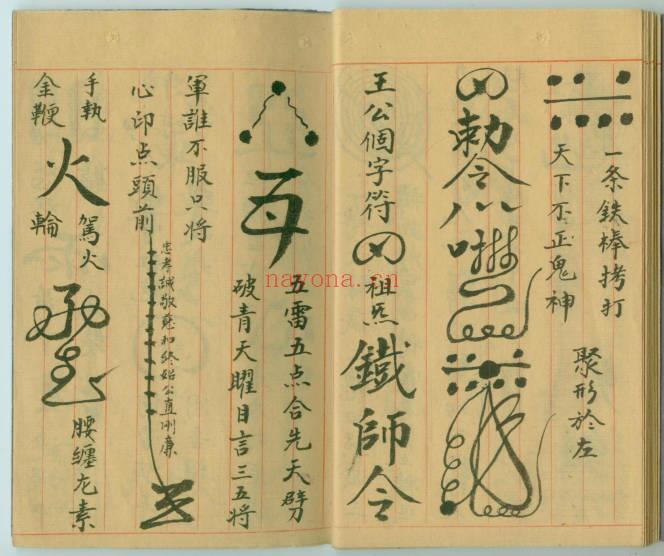 一条鉄棒拷打
天下不正鬼神
聚形於左
勅令
王公個字符
祖炁
鐵師令
五雷五点合先天劈
破青天曜目言三五将
軍誰不服只将
心印点頭前
忠孝誠敬慈和終始公直剛廉
手執
金鞭
火
駕火
輪
腰纏九素
nayona.cn